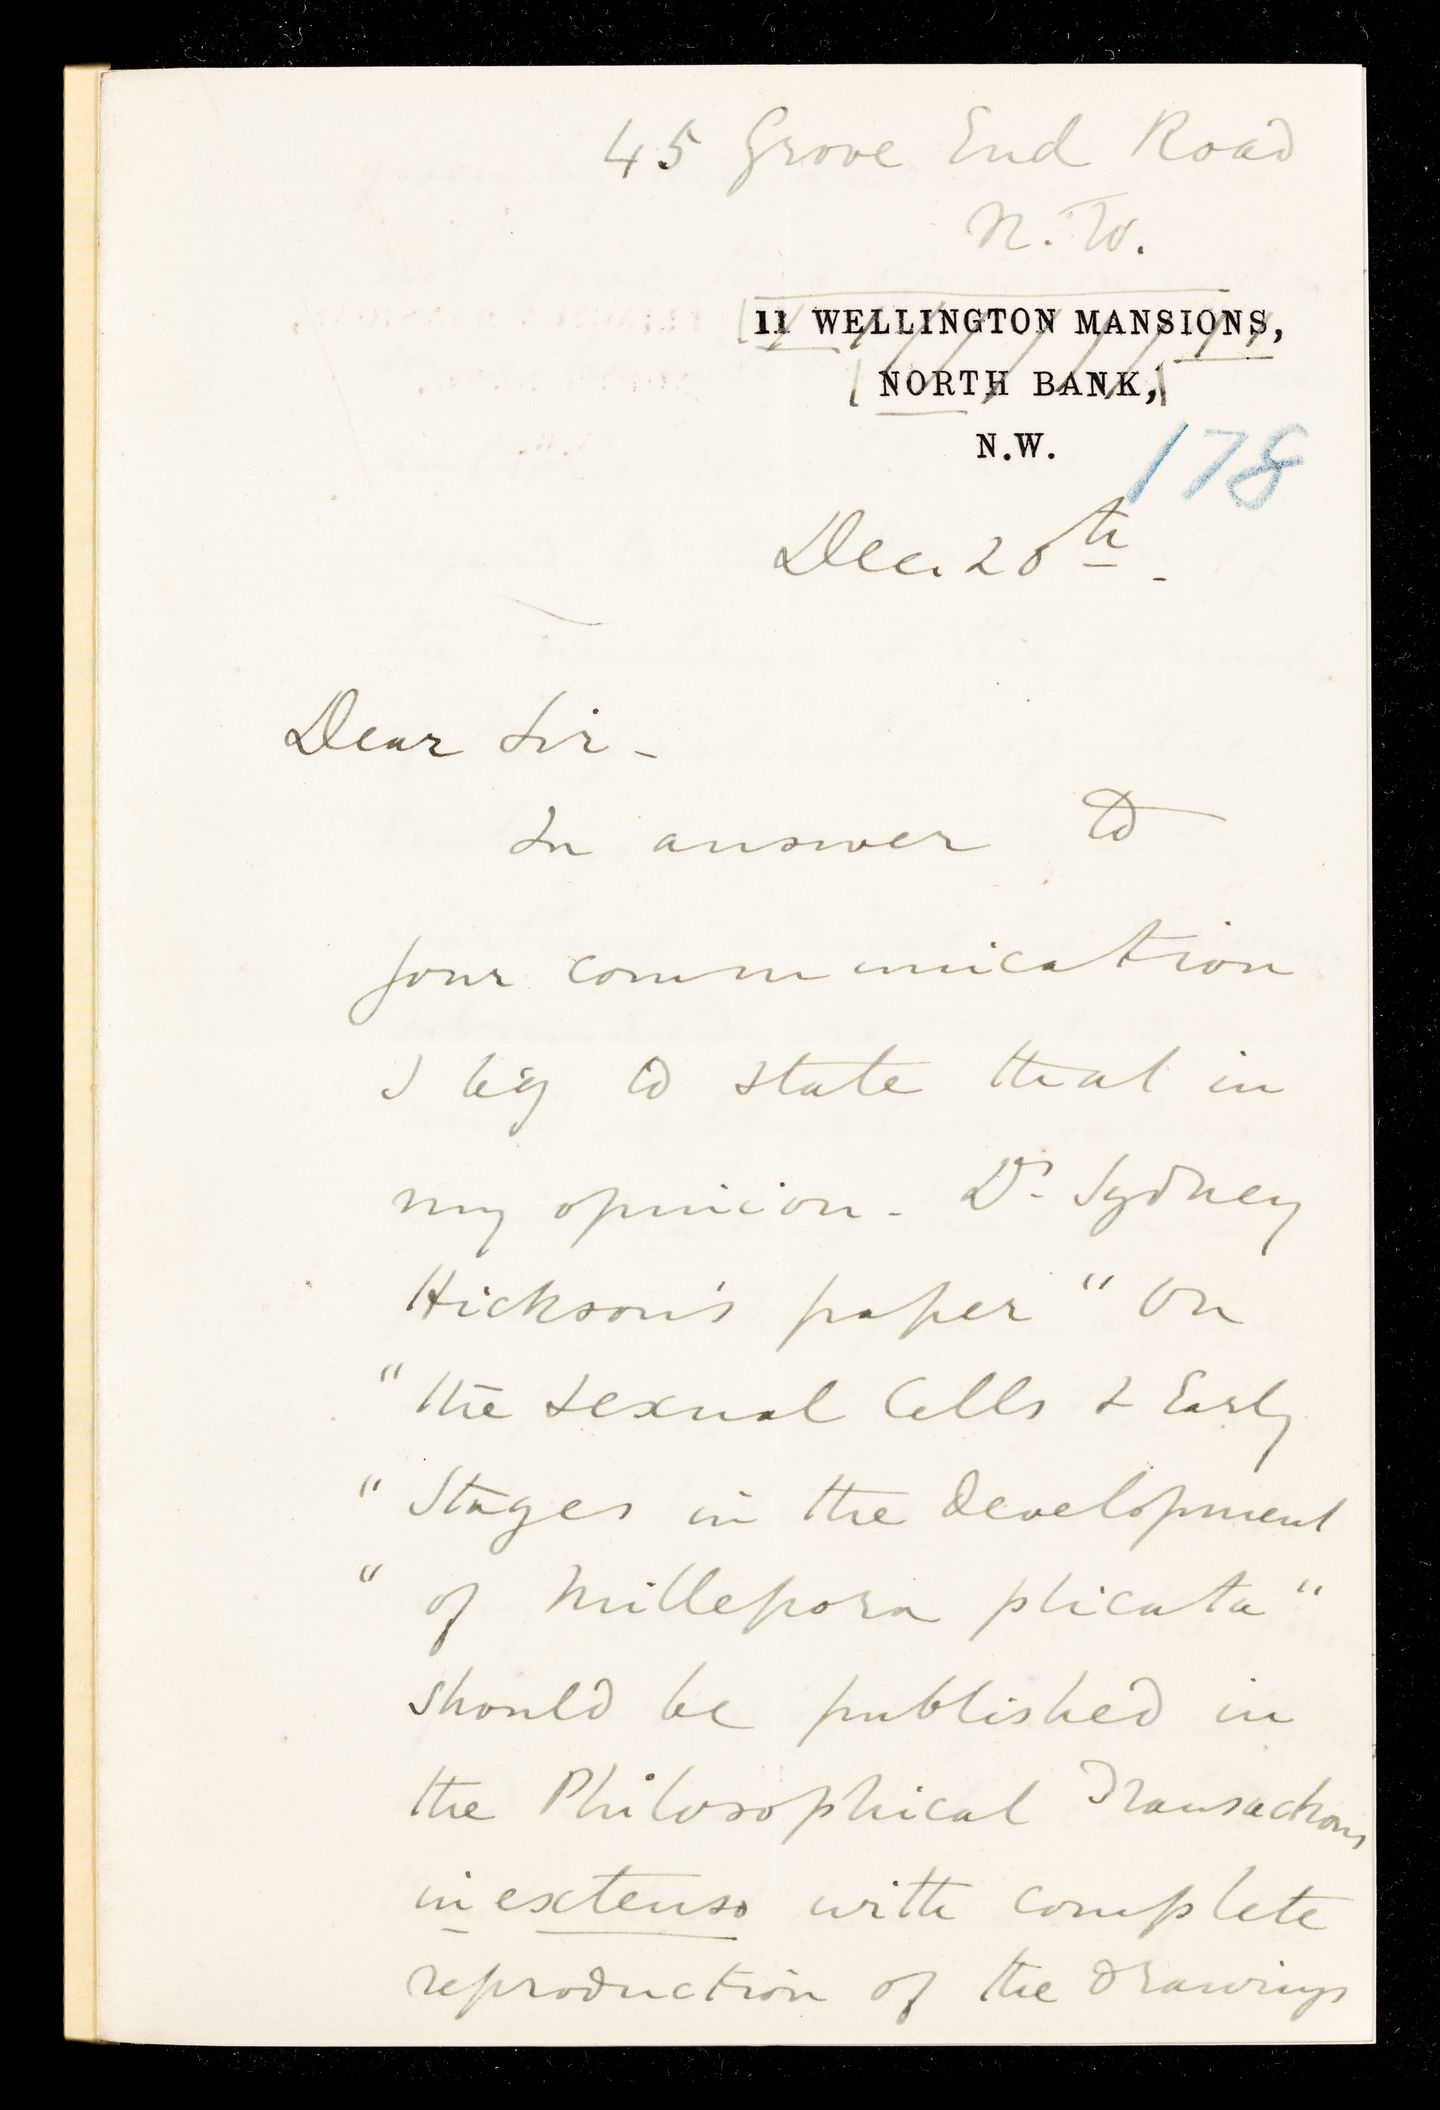 45 Grove End Road
N.W.
11 WELLINGTON MANSIONS,
NORTH BANK,
N.W.
178
Dec. 20th.
Dear Sir -
In answer to
your communication
I beg to state that in
my opinion - Dr. Sydney
Hickson's paper "On
"the Sexual Cells & Early
"Stages in the development
"of Millepora plicata"
should be published in
the Philosophical Transactions
in extenso with complete
reproduction of the drawings